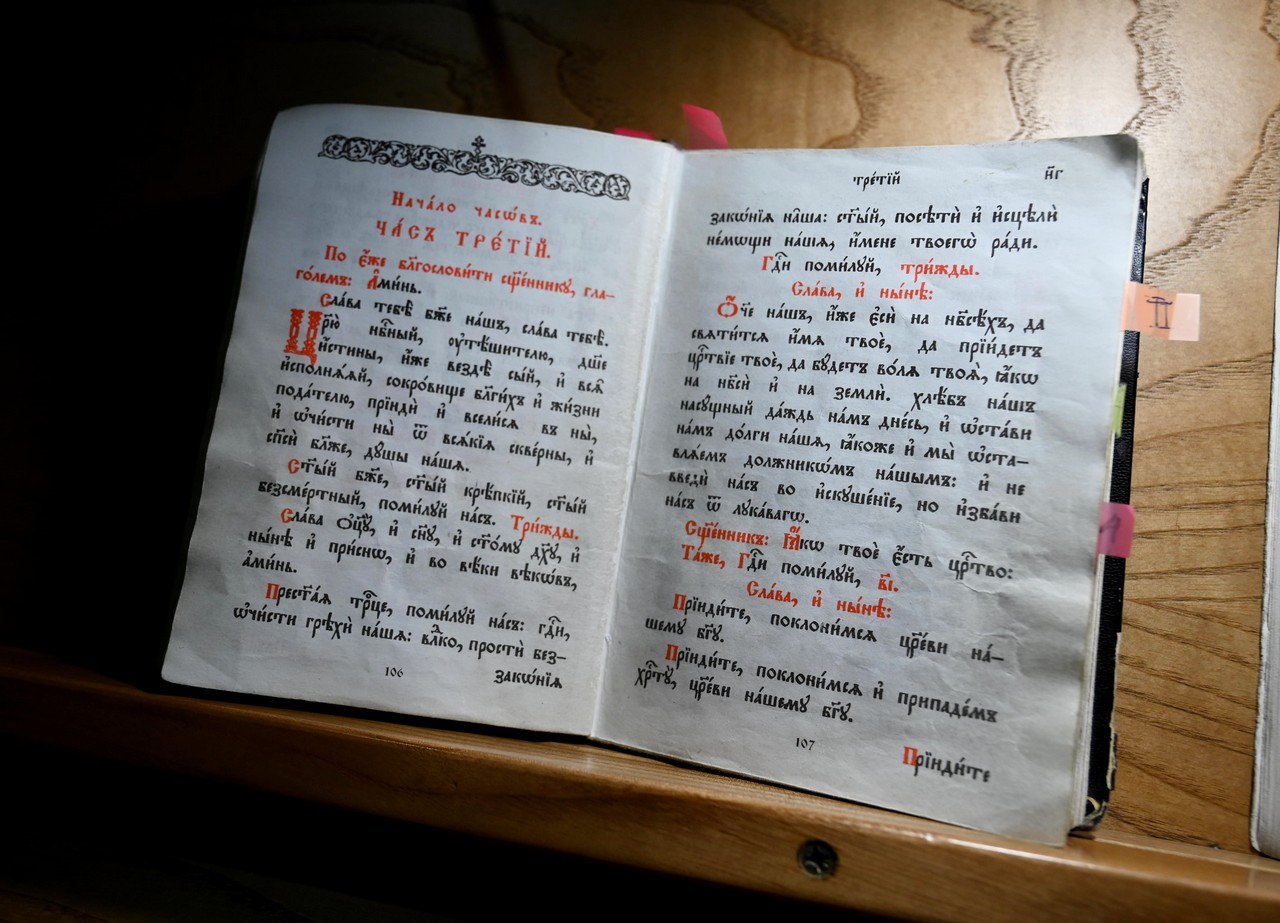 Нача́ло часѡ́въ.
ЧА́СЪ ТРЕ́ТЇЙ.
По є҆́же блгⷭ҇ослови́ти сщ҃е́ннику, гла-
го́лемъ: А҆ми́нь.
Сла́ва тебѣ̀ бж҃е на́шъ, сла́ва тебѣ̀.
Цр҃ю̀ нбⷭ҇ный, оу҆тѣ́шителю, дш҃е
и҆́стины, и҆́же вездѣ̀ сы́й, и҆ всѧ̑
и҆сполнѧ́ѧй, сокро́вище бл҃ги́хъ и҆ жи́зни
пода́телю, прїидѝ и҆ всели́сѧ въ ны̀,
и҆ ѡ҆чи́сти ны̀ ѿ всѧ́кїѧ скве́рны, и҆
сп҃сѝ бл҃же, дꙋ́шы на́шѧ.
Ст҃ы́й бж҃е, ст҃ы́й крѣ́пкїй, ст҃ы́й
безсме́ртный, поми́лꙋй на́съ. Три́жды.
Сла́ва ѻ҆ц҃ꙋ̀, и҆ сн҃ꙋ, и҆ ст҃о́мꙋ дх҃ꙋ, и҆
ны́нѣ и҆ при́снѡ, и҆ во вѣ́ки вѣкѡ́въ,
а҆ми́нь.
Прест҃а́ѧ трⷪ҇це, поми́лꙋй на́съ: гдⷭ҇и,
ѡ҆чи́сти грѣхѝ на́шѧ: влⷣко, простѝ без-
106
закѡ́нїѧ
тре́тїй
н҃г
закѡ́нїѧ на̑ша: ст҃ы́й, посѣтѝ и҆ и҆сцѣлѝ
не́мѡщи на́шѧ, и҆́мене твоегѡ̀ ра́ди.
Гдⷭ҇и поми́лꙋй, три́жды.
Сла́ва, и҆ ны́нѣ:
Ѻ҆́ч҃е на́шъ, и҆́же є҆сѝ на нб҃сѣ́хъ, да
свѧти́тсѧ и҆́мѧ твоѐ, да прїи́детъ
црⷭ҇твїе твоѐ, да бꙋ́детъ во́лѧ твоѧ̀, ꙗ҆́кѡ
на нб҃сѝ и҆ на землѝ. хлѣ́бъ на́шъ
насꙋ́щный да́ждь на́мъ дне́сь, и҆ ѡ҆ста́ви
на́мъ до́лги на́шѧ, ꙗ҆́коже и҆ мы̀ ѡ҆ста-
влѧ́емъ должникѡ́мъ на́шымъ: и҆ не
введѝ на́съ во и҆скꙋше́нїе, но и҆зба́ви
на́съ ѿ лꙋка́вагѡ.
Сщ҃е́нникъ: Ꙗ҆́кѡ твоѐ є҆́сть црⷭ҇тво:
Та́же, Гдⷭ҇и поми́лꙋй, в҃і.
Сла́ва, и҆ ны́нѣ:
Прїиди́те, поклони́мсѧ цр҃е́ви на́-
шемꙋ бг҃ꙋ.
Прїиди́те, поклони́мсѧ и҆ припаде́мъ
хрⷭ҇тꙋ̀, цр҃е́ви на́шемꙋ бг҃ꙋ.
107
Прїиди́те